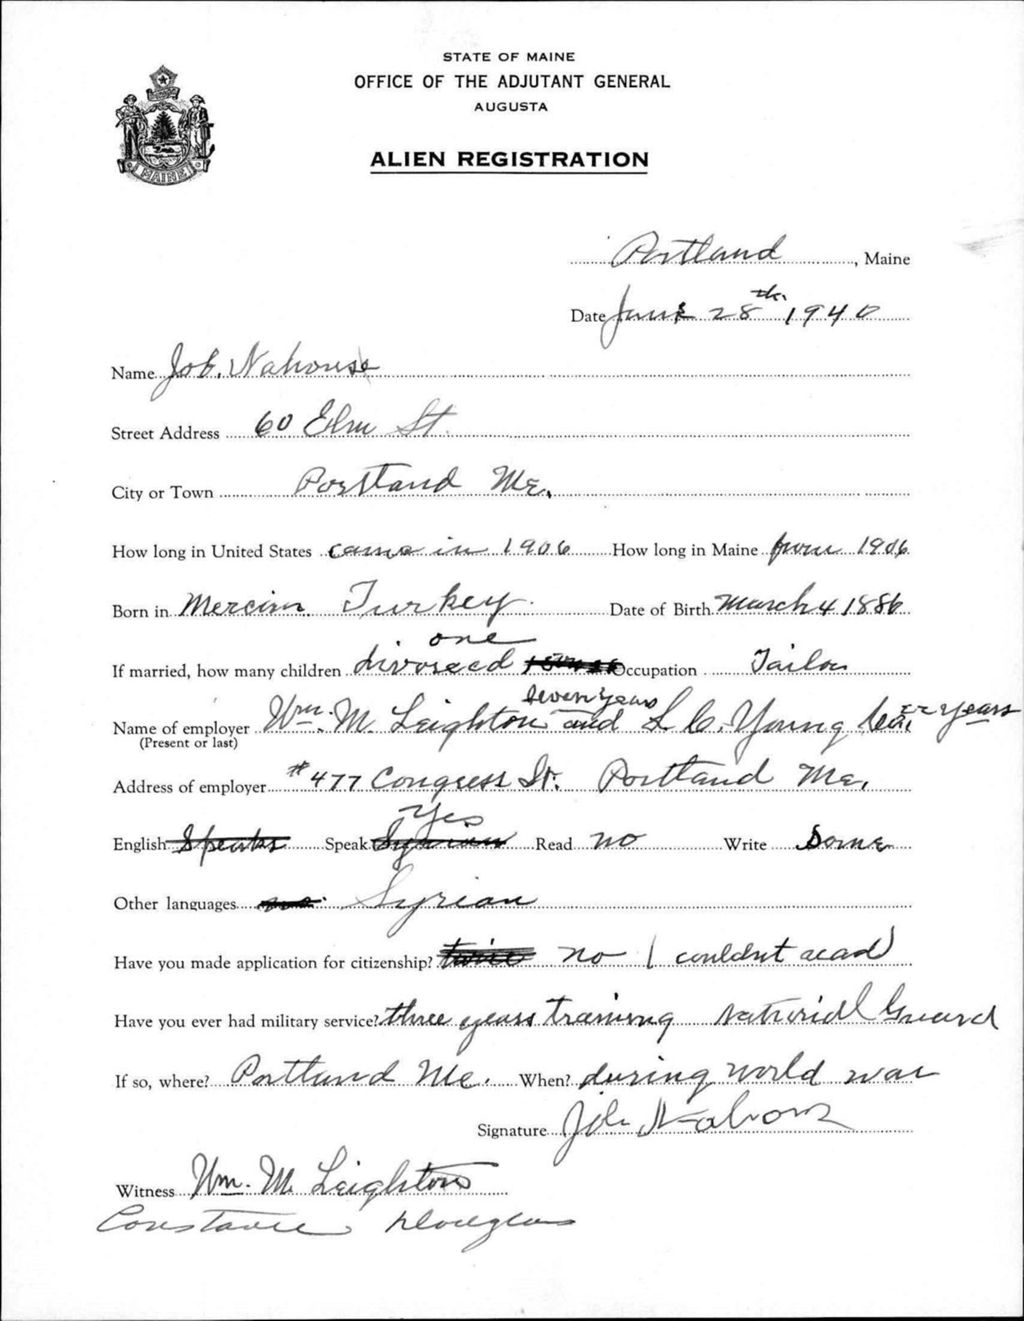 STATE OF MAINE
OFFICE OF THE ADJUTANT GENERAL
AUGUSTA
ALIEN REGISTRATION
MAINE
Portland, Maine
Date June 28th. 1940
Name Job. Nahouse
Street Address 60 Elm St.
City or Town Portland Me.
How long in United States came in 1906 How long in Maine from 1906
Born in Mercim Turkey. Date of Birth March 4 1886
one
If married, how many children divorced Occupation Tailor
seven years
Name of employer Wm. M. Leighton and L C. Young Co. years
(Present or last)
Address of employer #477 Congress St. Portland Me.
Yes
English Speaks Speak Syrian Read no Write Some
Other languages no. Syrian
Have you made application for citizenship? twice no I couldnt read
Have you ever had military service? three years training National Guard
If so, where? Portland Me. When? during world war
Signature Job Nahous
Witness Wm. M. Leighton
Constance Douglass